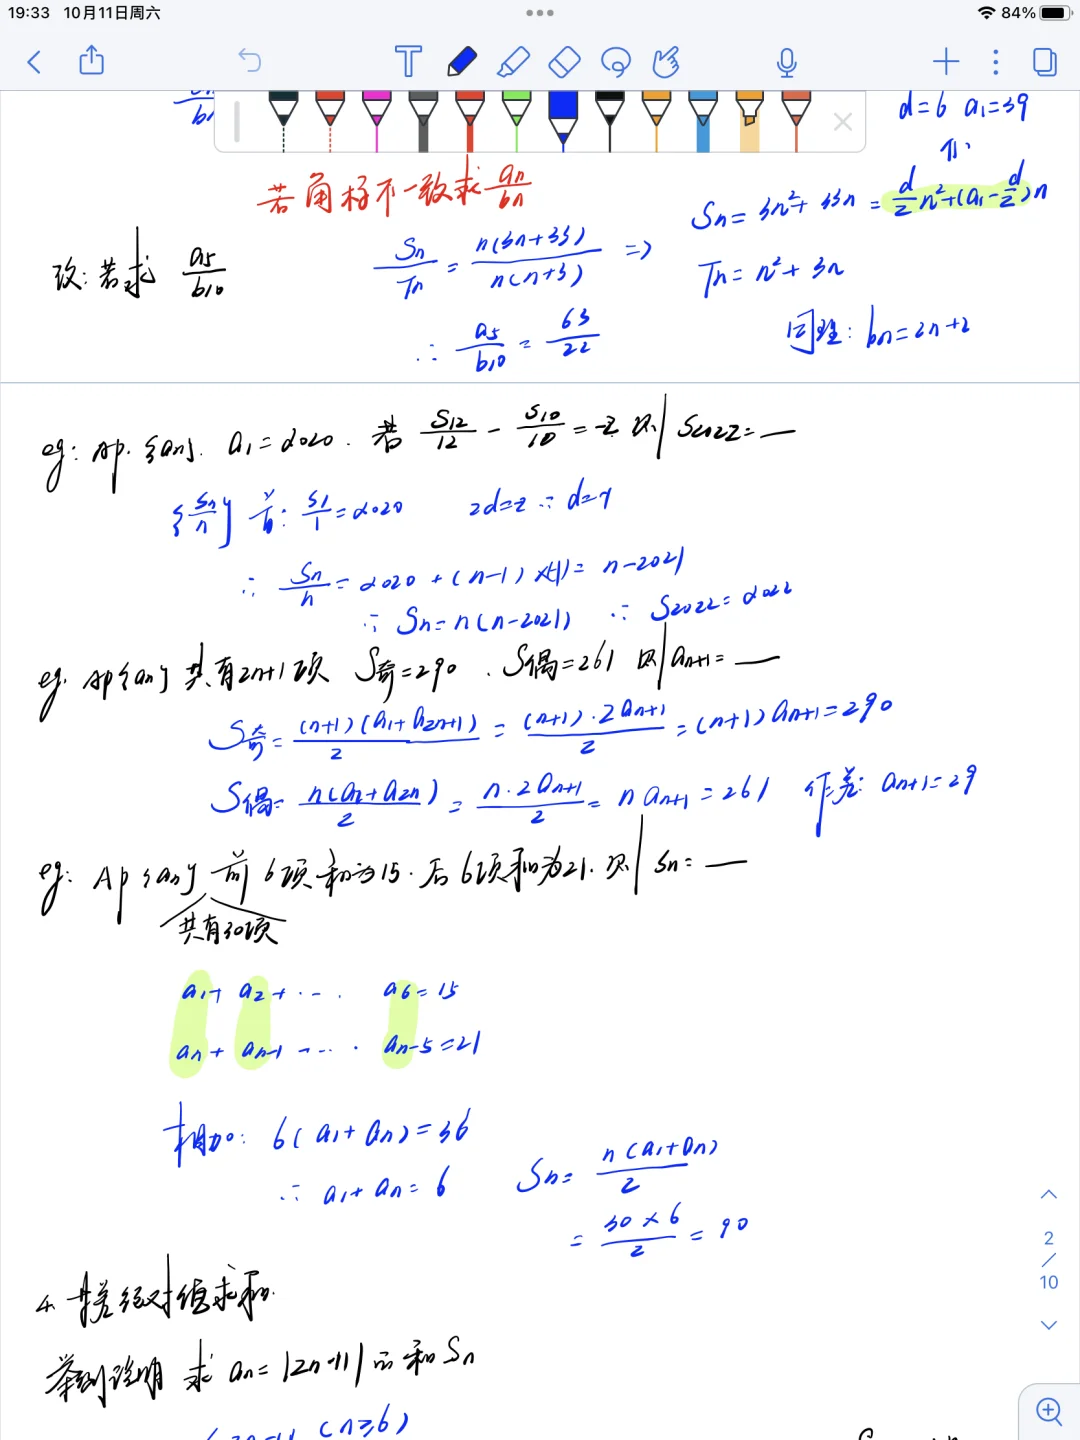 19:33 10月11日周六
84%
T
d=6 a₁=39
若角标不一致求 an/bn
Sn=3n²+33n = d/2 n²+(a₁-d/2)n
改:若求 a5/b10
Sn/Tn = n(3n+33)/n(n+3) ⇒
Tn=n²+3n
∴ a5/b10 = 63/22
同理: bn=2n+2
eg: Ap. {an}. a₁=2020. 若 S12/12 - S10/10 = -2 则 S2022=__
{Sn/n} 首: S1/1=2020 2d=2 ∴ d=1
∴ Sn/n = 2020+(n-1)×(-1)= n-2021
∴ Sn=n(n-2021) ∴ S2022=2022
eg. Ap{an} 共有2n+1项 S奇=290. S偶=261 则 an+1=__
S奇= (n+1)(a1+a2n+1)/2 = (n+1)·2an+1/2 = (n+1)an+1=290
S偶= n(a2+a2n)/2 = n·2an+1/2 = n an+1=261 作差: an+1=29
eg: Ap {an} 前6项和为15. 后6项和为21. 则 Sn=__
共有30项
a1+ a2+ ··· a6=15
an+ an-1 ···· an-5=21
相加: 6(a1+an)=36
∴ a1+an=6 Sn= n(a1+an)/2
= 30×6/2 = 90
2
/
10
4. 等差绝对值求和.
举例说明 求 an=|2n-11| 的和Sn
(n≥6)